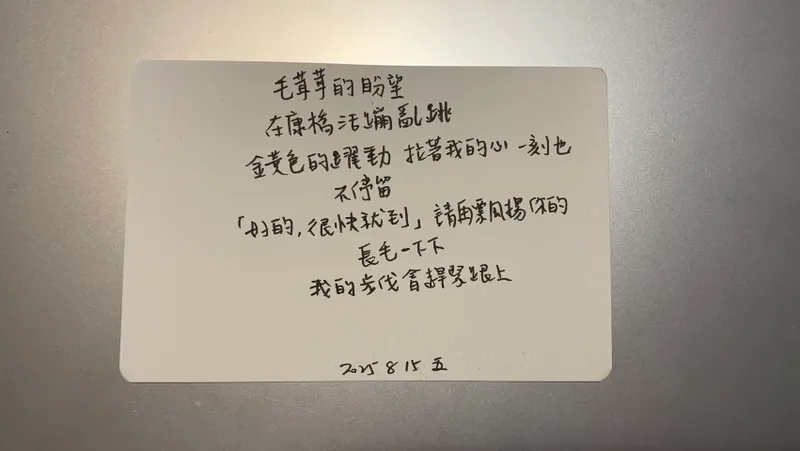 毛茸茸的盼望
在康橋活蹦亂跳
金黃色的躍動 拉著我的心 一刻也
不停留
「好的,很快就到」請再飄揚你的
長毛一下下
我的步伐會趕緊跟上
2025 8 15 五